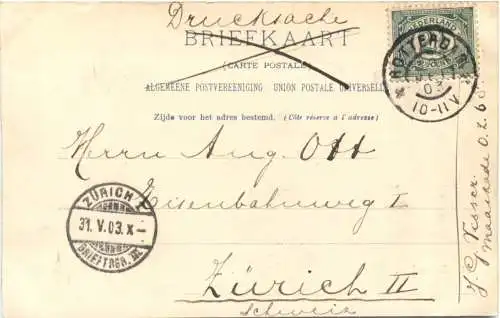 Drucksache
BRIEFKAART
(CARTE POSTALE)
ALGEMEENE POSTVEREENIGING UNION POSTALE UNIVERSELLE
Zijde voor het adres bestemd. (Côté réservé a l'adresse)
Herrn Aug. Ott
Eisenbahnweg I
Zürich II
Schweiz
NEDERLAND
ROTTERDAM
03
10-11V
ZÜRICH
31. V. 03. X-
BRIEFTRGR. III
J. C. Visser.
Maaskade O.Z. 68